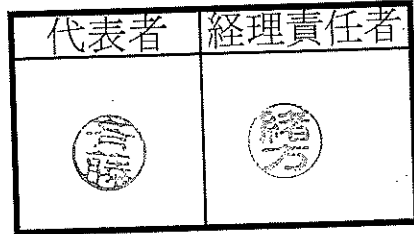 代表者 経理責任者
緒方